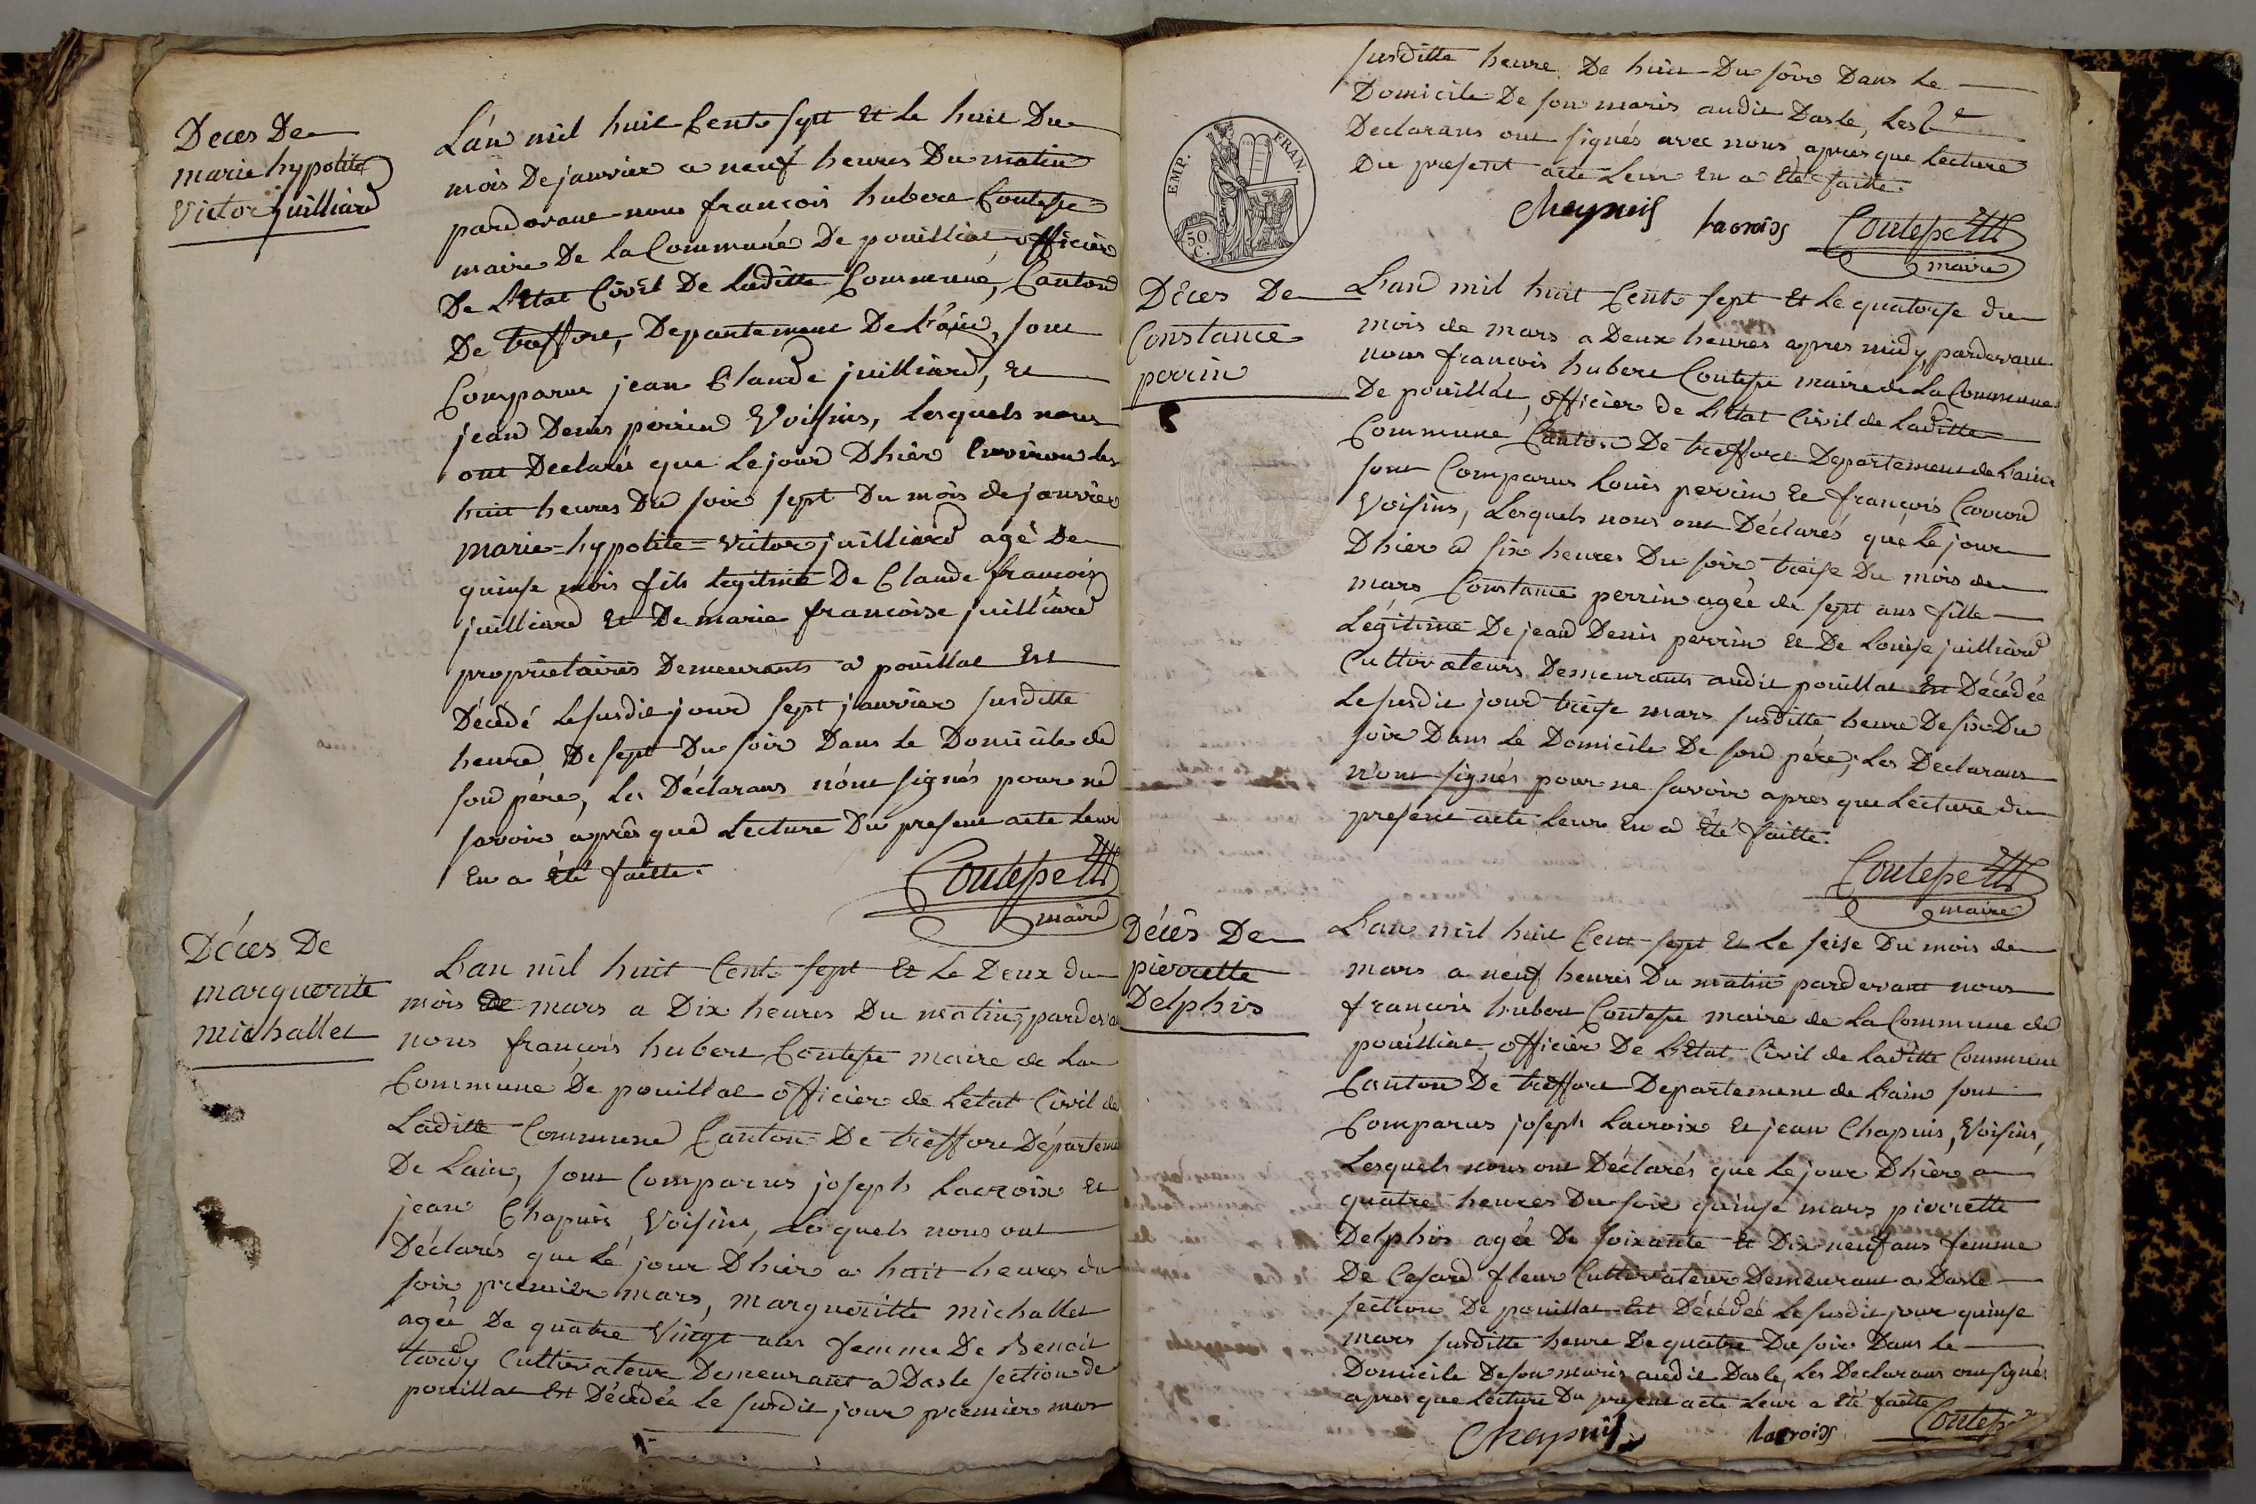 Deces De
marie hypolite
Victor juilliard
L'an mil huit Cent sept Et le huit Du
mois De janvier a neuf heures Du matin
pardevant nous francois hubert Coutepe
maire De La Commune De pouilliat, officier
De L'Etat Civil De Laditte Commune, Canton
De treffort, Departement De L'ain, sont
Comparus jean Claude juilliard, et
jean Denis perrin Voisins, Lesquels nous
ont Declarés que Le jour Dhier Environ les
huit heures Du soir sept Du mois de janvier
marie=hypolite=victor juilliard agé De
quinse mois fils Legitime De Claude francois
juilliard Et De marie francoise juilliard
proprietaires Demeurants a pouillat Est
Décédé Lesusdit jour sept janvier susditte
heure De sept Du soir Dans Le Domicile de
son père, Les Déclarans n'ont signés pour ne
savoir après que Lecture Du present acte Leur
En a été faitte.
Coutepe
maire
Déces De
marguerite
michallet
L'an mil huit Cent sept Et Le Deux du
mois De mars a Dix heures Du matin, pardeva
nous francois hubert Coutepe maire de La
Commune De pouillat officier de Letat Civil de
Laditte Commune Canton De treffort Départeme
De Lain, sont Comparus joseph Lacroix Et
jean Chapuis, Voisins, Lesquels nous ont
Déclarés que Le jour Dhier a huit heures du
soir premier mars, margueritte michallet
agée De quatre Vingt ans femme De Benoit
tardy Cultivateur Demeurant a Dasle section de
pouillat Est Décédée Le susdit jour premier mars
susditte heure De huit Du soir Dans Le
Domicile De son maris audit Dasle, Les
Declarans ont signés avec nous apres que Lecture
Du present acte Leur En a Eté faitte.
Chapuis Lacroix Coutepe
maire
EMP. FRAN.
50 C.
Déces De
Constance
perrin
L'an mil huit Cent sept Et Le quatorse du
mois de mars a Deux heures apres midy, pardevant
nous francois hubert Coutepe maire de La Commune
De pouillat, officier de L'Etat Civil de Laditte
Commune Canton De treffort Departement de L'ain
sont Comparus Louis perrin Et françois Carron
Voisins, Lesquels nous ont Déclarés que Le jour
Dhier a six heures Du soir treise Du mois de
mars Constance perrin agée de sept ans fille
Légitime De jean Denis perrin Et De Louise juilliard
Cultivateurs Demeurants audit pouillat Est Décédée
Le susdit jour treise mars susditte heure De six Du
soir Dans Le Domicile De son père, Les Declarans
n'ont signés pour ne savoir apres que Lecture du
present acte Leur En a Eté faitte.
Coutepe
maire
Décès De
pierrette
Delphis
L'an mil huit Cent sept Et Le seise Du mois de
mars a neuf heures Du matin pardevant nous
francois hubert Coutepe maire de La Commune de
pouilliat, officier De L'Etat Civil de Laditte Commune
Canton De treffort Departement de Lain sont
Comparus joseph Lacroix Et jean Chapuis, Voisins,
Lesquels nous ont Déclarés que Le jour Dhier a
quatre heures Du soir quinse mars pierrette
Delphis agée De soixante Et Dix neuf ans femme
De Cesard fleur Cultivateur Demeurant a Dasle
section De pouillat Est Décédée Le susdit jour quinse
mars susditte heure De quatre Du soir Dans Le
Domicile De son maris audit Dasle, Les Declarans ont signés
apres que Lecture Du present acte Leur a Eté faitte
Chapuis Lacroix Coutepe